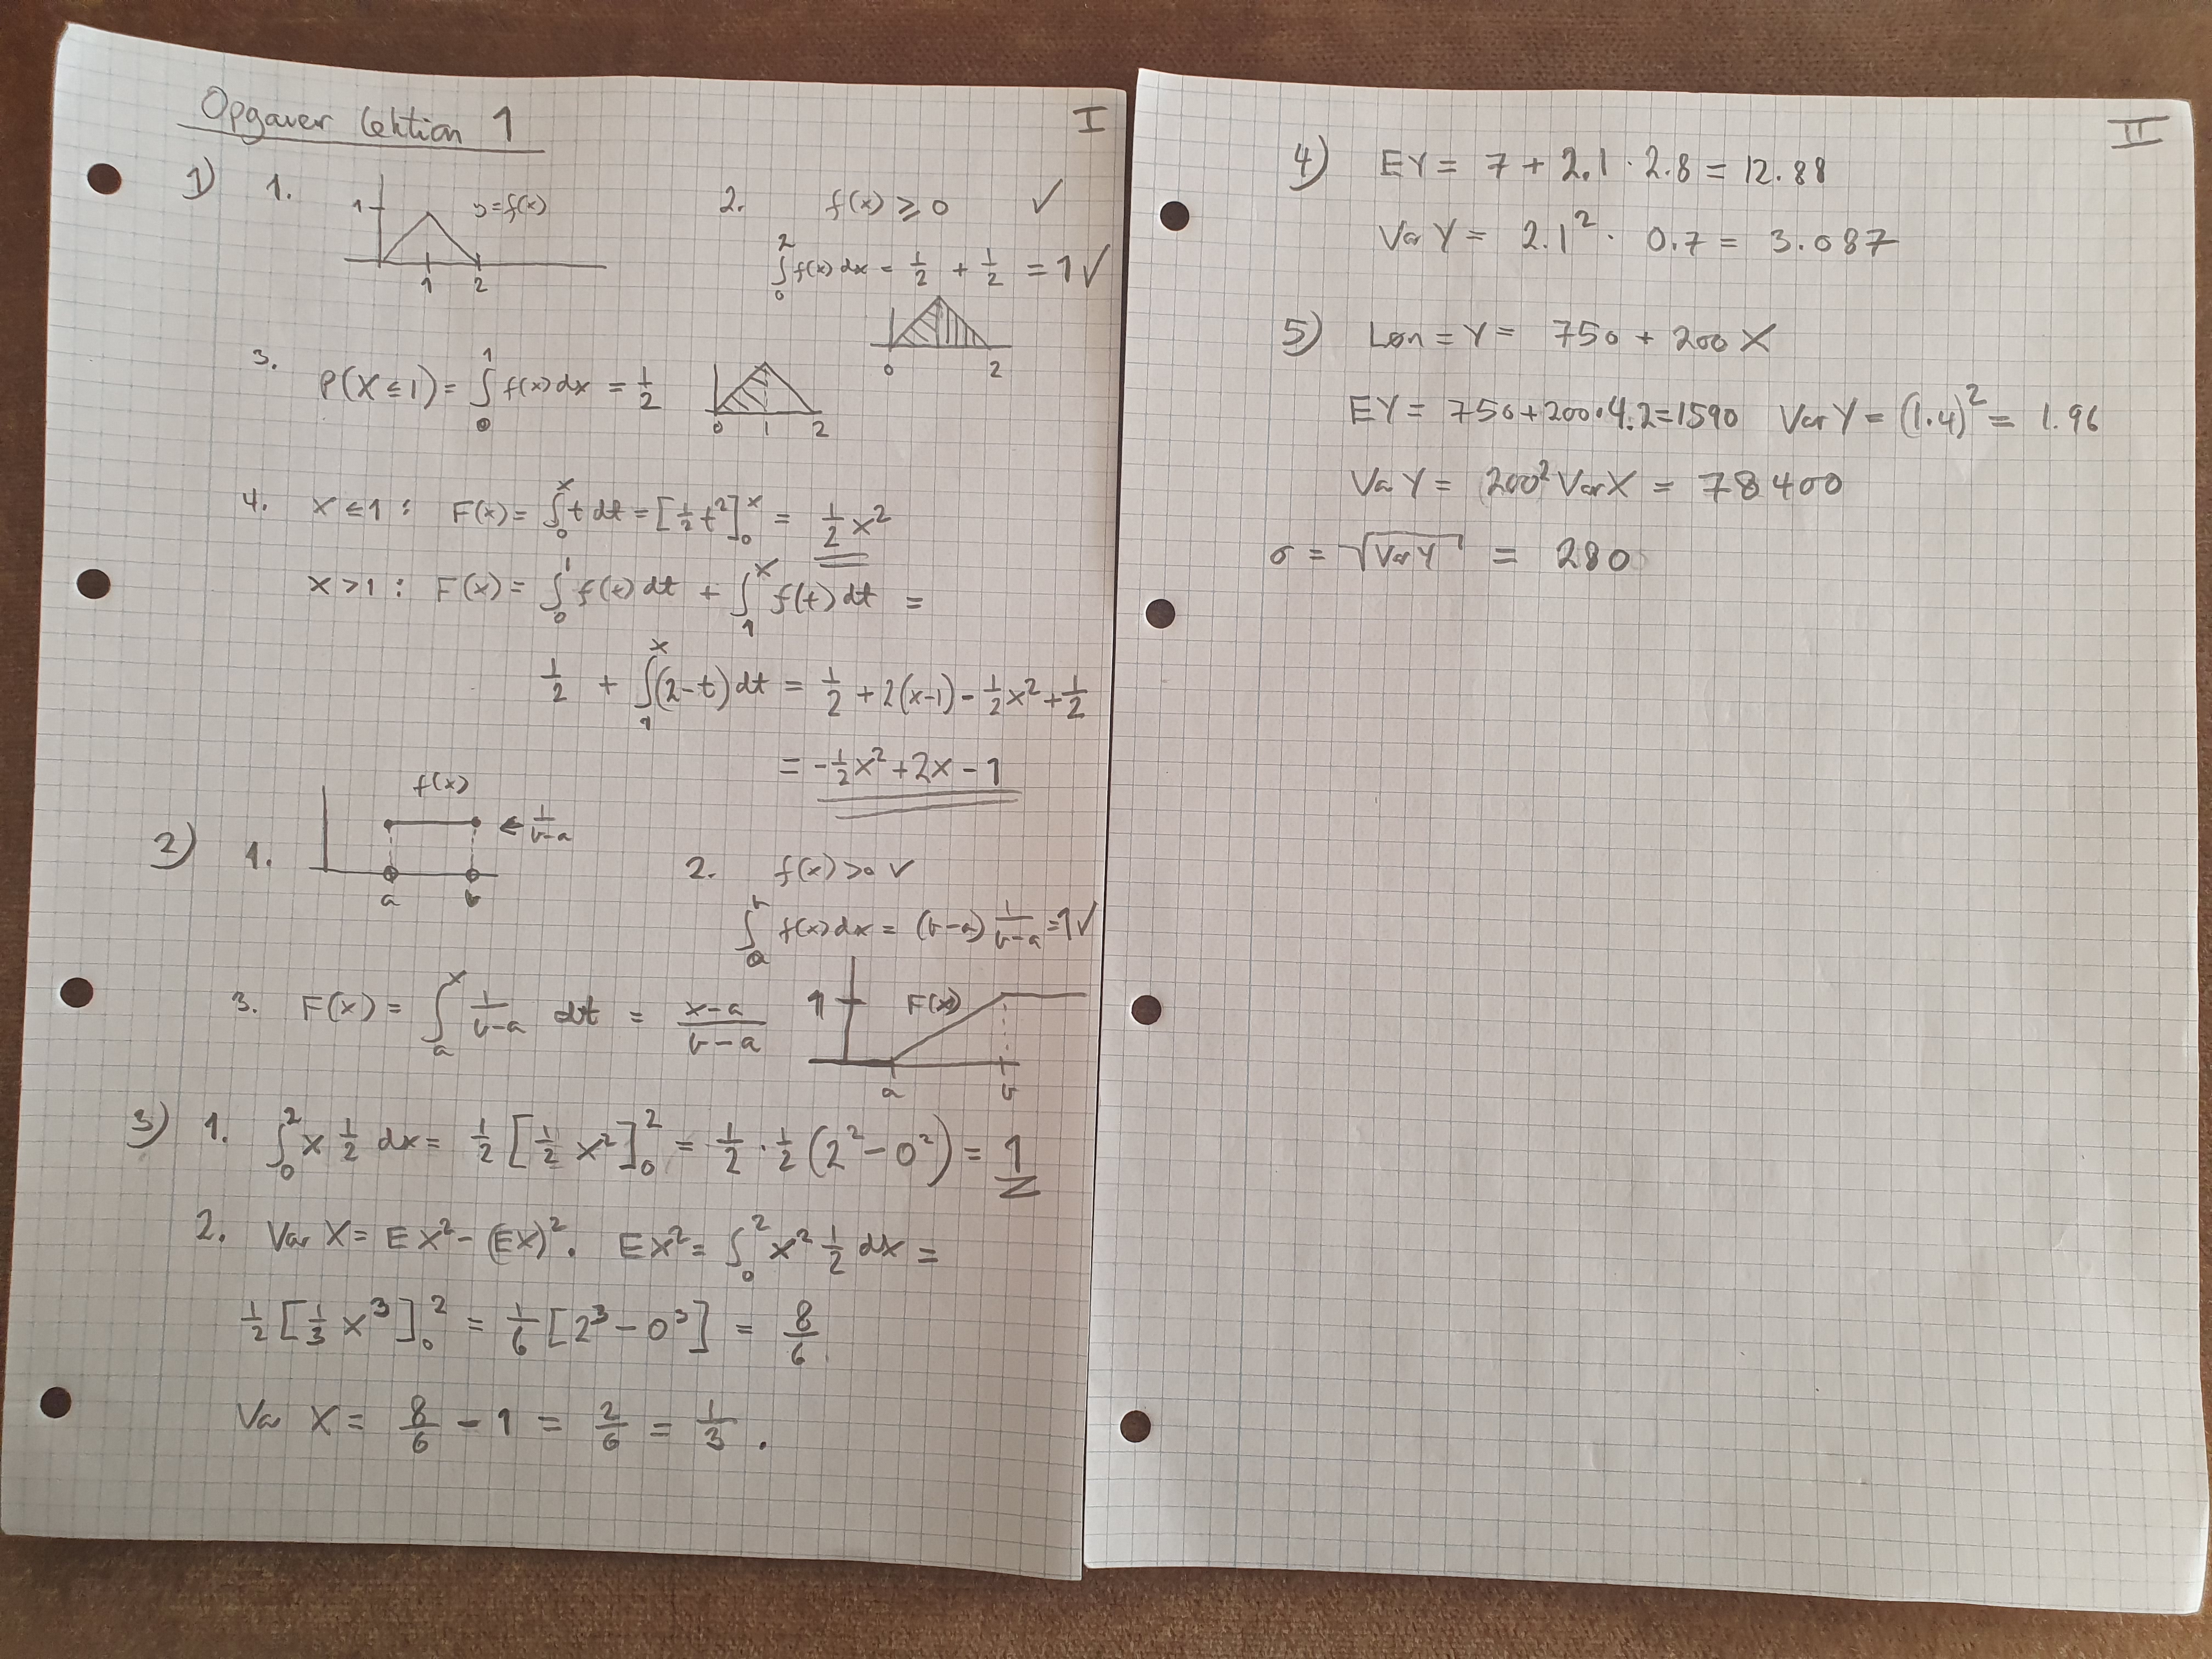 Opgaver lektion 1
I
1) 1. 1 y=f(x) 1 2
2. f(x) ≥ 0 ✓
∫₀² f(x) dx = 1/2 + 1/2 = 1 ✓
0 2
3. P(X ≤ 1) = ∫₀¹ f(x) dx = 1/2
0 1 2
4. x ≤ 1 : F(x) = ∫₀ˣ t dt = [1/2 t²]₀ˣ = 1/2 x²
x > 1 : F(x) = ∫₀¹ f(t) dt + ∫₁ˣ f(t) dt =
1/2 + ∫₁ˣ (2-t) dt = 1/2 + 2(x-1) - 1/2 x² + 1/2
= -1/2 x² + 2x - 1
2) 1. f(x) ← 1/(b-a) a b
2. f(x) > 0 ✓
∫ₐᵇ f(x) dx = (b-a) 1/(b-a) = 1 ✓
3. F(x) = ∫ₐˣ 1/(b-a) dt = (x-a)/(b-a)
1 F(x) a b
3) 1. ∫₀² x 1/2 dx = 1/2 [1/2 x²]₀² = 1/2 · 1/2 (2² - 0²) = 1
2. Var X = EX² - (EX)². EX² = ∫₀² x² 1/2 dx =
1/2 [1/3 x³]₀² = 1/6 [2³ - 0³] = 8/6.
Var X = 8/6 - 1 = 2/6 = 1/3 .
II
4) EY = 7 + 2.1 · 2.8 = 12.88
Var Y = 2.1² · 0.7 = 3.087
5) Løn = Y = 750 + 200 X
EY = 750 + 200 · 4.2 = 1590 Var Y = (1.4)² = 1.96
Var Y = 200² Var X = 78 400
σ = √Var Y = 280